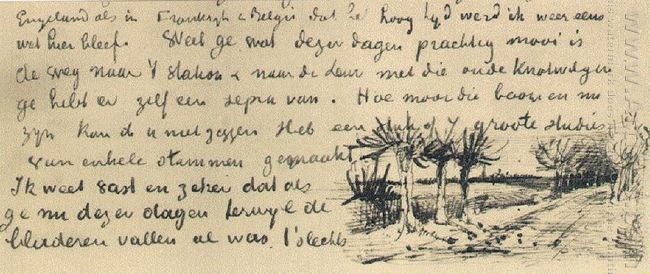 Engeland als in Frankryk & Belgie dat het hoog tyd werd ik weer eens
wat hier bleef. Weet ge wat dezer dagen prachtig mooi is
de weg naar 't station & naar de Leur met die oude knotwilgen
ge hebt er zelf een sepia van. Hoe mooi die boomen nu
zyn kan ik u niet zeggen Heb een stuk of 7 groote studies
van enkele stammen gemaakt
Ik weet vast en zeker dat als
ge nu dezer dagen terwyl de
bladeren vallen al was 't slechts